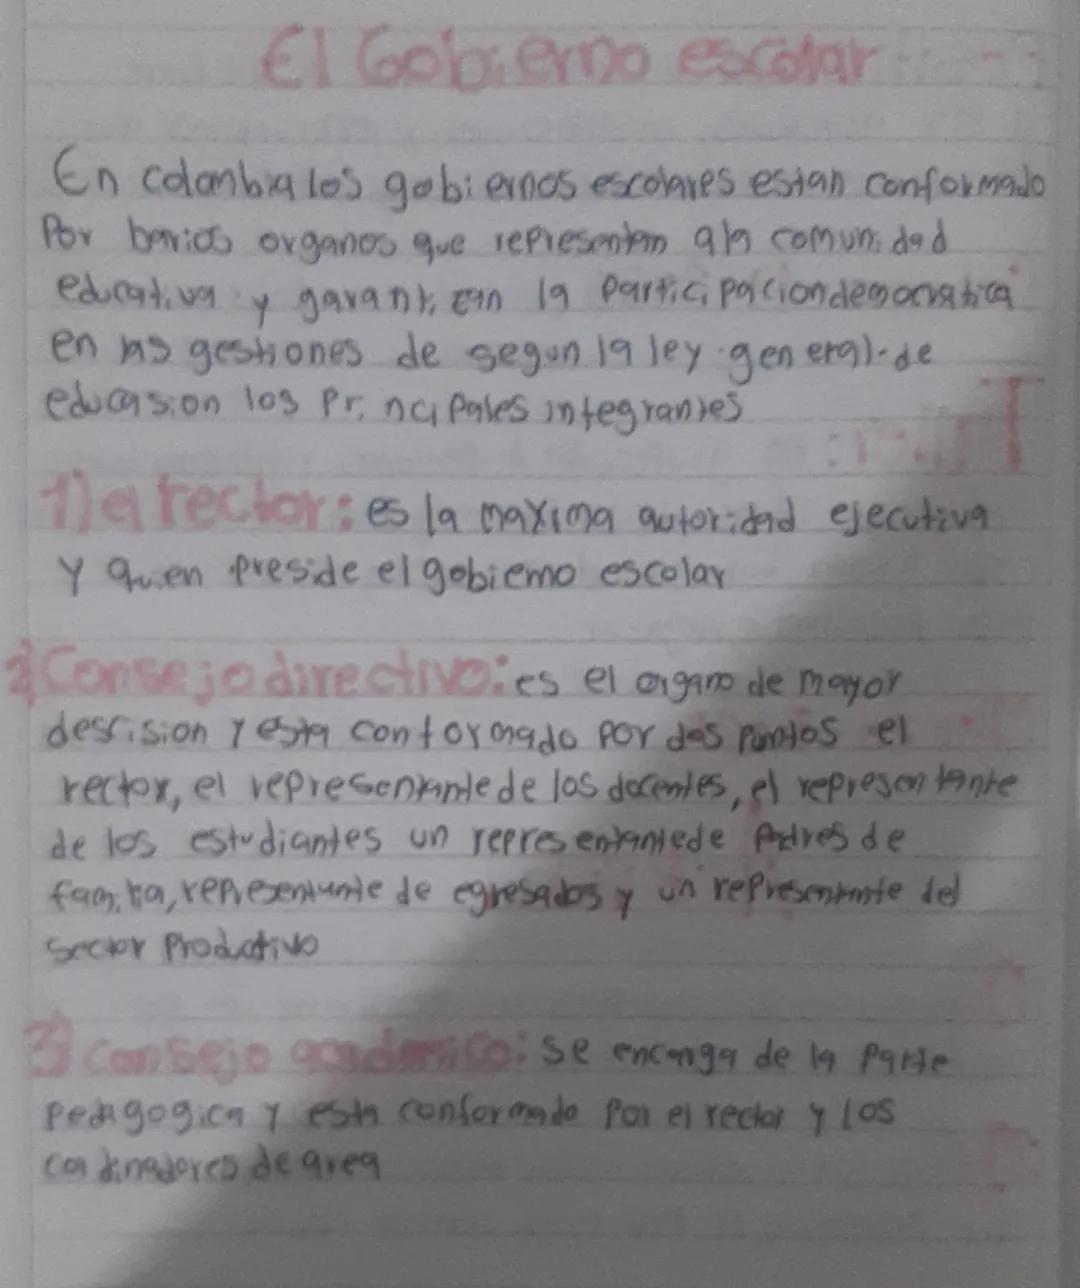 El Gobierno escolar
En colombia los gobiernos escolares estan conformado
Por barios organos que representan a la comunidad
educativa y garantizan la participacion democratica
en las gestiones de segun la ley general de
educasion los principales integrantes
1) el rector: es la maxima autoridad ejecutiva
y quien preside el gobierno escolar
2) Consejo directivo: es el organo de mayor
descision y esta conformado por dos puntos el
rector, el representante de los docentes, el representante
de los estudiantes un representante de Padres de
familia, representante de egresados y un representante del
sector Productivo
3) Consejo academico: se encarga de la parte
pedagogica y esta conformado por el rector y los
cordinadores de area